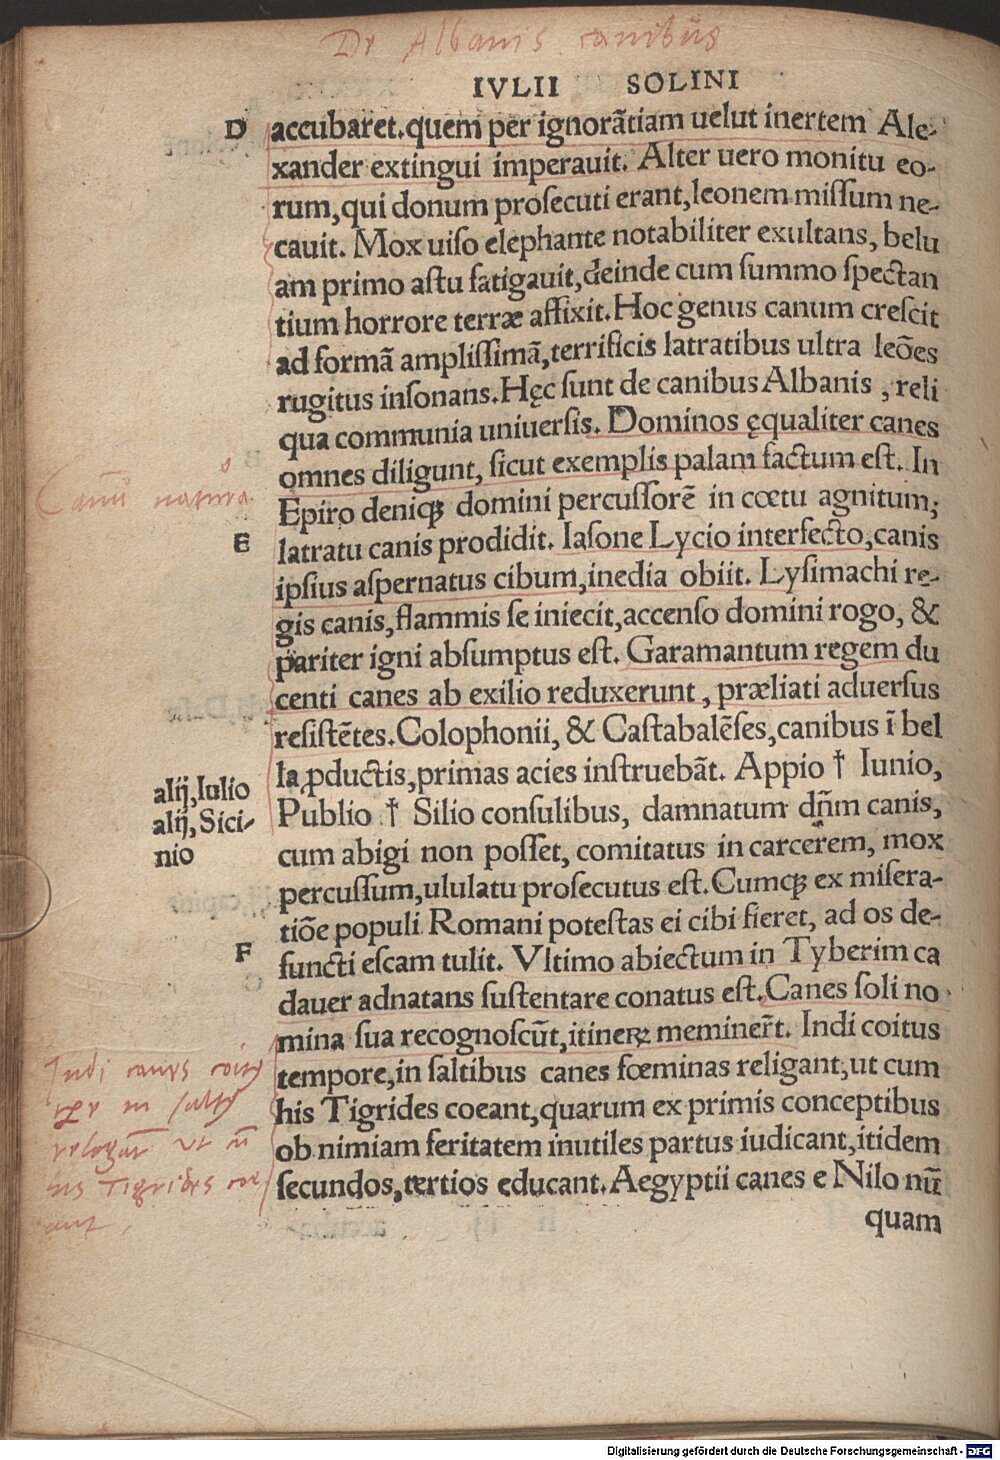 De Albanis canibus
IVLII SOLINI
D
accubaret.quem per ignorãtiam uelut inertem Ale-
xander extingui imperauit. Alter uero monitu eo-
rum,qui donum proſecuti erant,leonem miſſum ne-
cauit. Mox uiſo elephante notabiliter exultans, belu
am primo aſtu fatigauit,deinde cum ſummo ſpectan
tium horrore terræ affixit.Hoc genus canum creſcit
ad formã ampliſſimã,terrificis latratibus ultra leões
rugitus inſonans.Hęc ſunt de canibus Albanis , reli
qua communia uniuerſis. Dominos ęqualiter canes
omnes diligunt, ſicut exemplis palam factum eſt. In
Canũ natura
Epiro denicꝙ domini percuſſorē in cœtu agnitum,
E
latratu canis prodidit. Iaſone Lycio interfecto,canis
ipſius aſpernatus cibum,inedia obiit. Lyſimachi re-
gis canis,flammis ſe iniecit,accenſo domini rogo, &
pariter igni abſumptus eſt. Garamantum regem du
centi canes ab exilio reduxerunt , præliati aduerſus
reſiſtētes.Colophonii, & Caſtabalēſes,canibus ĩ bel
la ꝓductis,primas acies inſtruebãt. Appio † Iunio,
alij,Iulio
Publio † Silio conſulibus, damnatum dñm canis,
alij, Sici-
nio
cum abigi non poſſet, comitatus in carcerem, mox
percuſſum,ululatu proſecutus eſt.Cumcꝙ ex miſera-
tiõe populi Romani poteſtas ei cibi fieret, ad os de-
F
functi eſcam tulit. Vltimo abiectum in Tyberim ca
dauer adnatans ſuſtentare conatus eſt.Canes ſoli no
mina ſua recognoſcũt,itineꝝ meminer̃t. Indi coitus
tempore,in ſaltibus canes fœminas religant,ut cum
his Tigrides coeant,quarum ex primis conceptibus
ob nimiam feritatem inutiles partus iudicant,itidem
ſecundos,tertios educant.Aegyptii canes e Nilo nũ
Indi canes
in
ut
Tigrides
quam
Digitalisierung gefördert durch die Deutsche Forschungsgemeinschaft - DFG